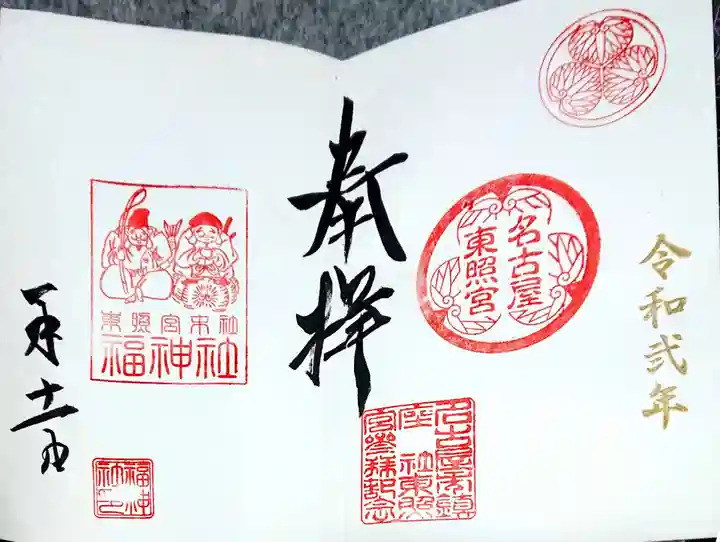 令和弐年
名古屋
東照宮
奉拝
名古屋鎮
座 社東照
宮参拝記念
東照宮末社
福神社
一月十一日
福神
社印